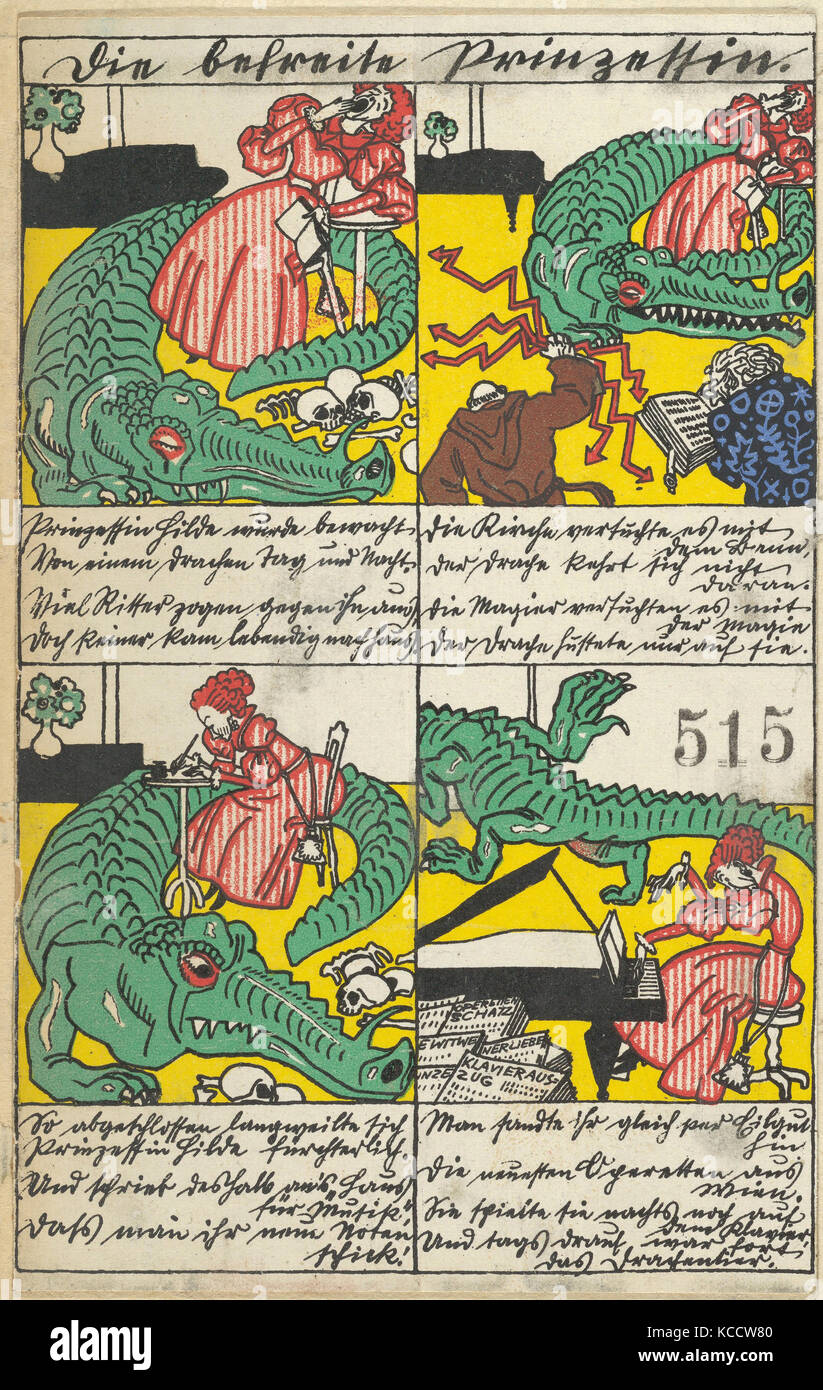 Die befreite Prinzessin.
Prinzessin Hilde wurde bewacht
Von einem Drachen Tag und Nacht.
Viel Ritter zogen gegen ihn aus,
Doch keiner kam lebendig nach Haus.
Die Kirche versuchte es mit
dem Bann,
Der Drache kehrt sich nicht
daran.
Die Magier versuchten es mit
der Magie
Der Drache hustete nur auf sie.
So abgeschlossen langweilte sich
Prinzessin Hilde fürchterlich.
Und schrieb deshalb an's Haus
für Musik:
Dass man ihr neue Noten
schick!
515
OPERETTEN
SCHATZ
E WITWE
NERLIEBE
NZE
KLAVIERAUS-
ZUG
Man sandte ihr gleich per Eilgut
hin
Die neuesten Operetten aus
Wien.
Sie spielte sie nachts noch auf
dem Klavier
Und tags drauf war fort
das Drachentier.
alamy
Image ID: KCCW80
www.alamy.com